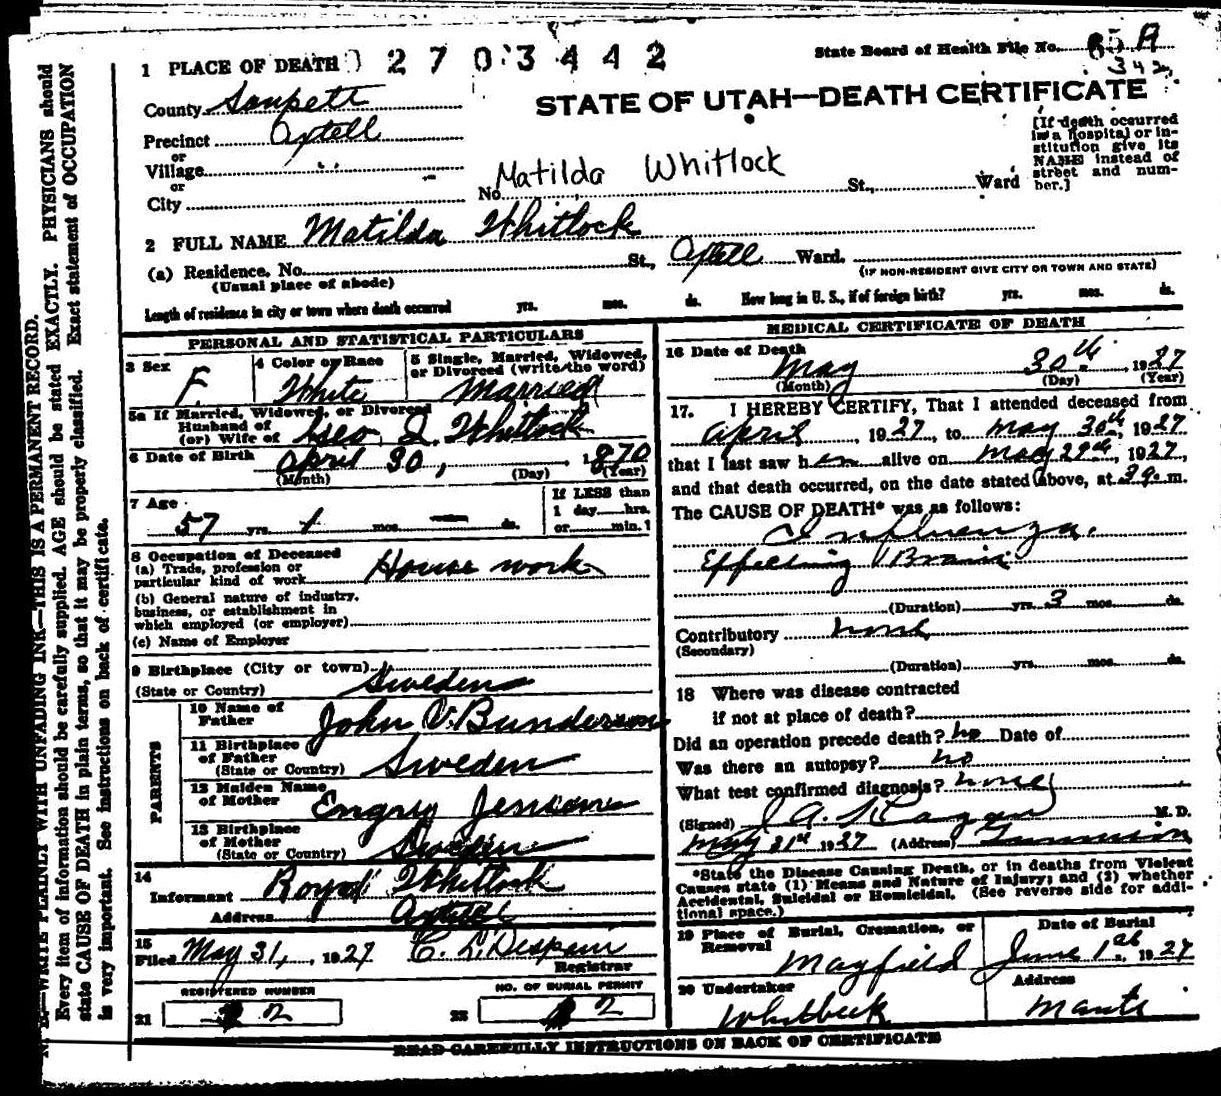 State Board of Health File No. 65 A
342
1 PLACE OF DEATH 0 2 7 0 3 4 4 2
STATE OF UTAH—DEATH CERTIFICATE
County Sanpete
Precinct Axtell
or
Village
or
City
No. Matilda Whitlock St., Ward
[If death occurred
in a hospital or in-
stitution give its
NAME instead of
street and num-
ber.]
2 FULL NAME Matilda Whitlock
(a) Residence, No. St., Axtell Ward.
(Usual place of abode)
(IF NON-RESIDENT GIVE CITY OR TOWN AND STATE)
Length of residence in city or town where death occurred yrs. mos. ds. How long in U. S., if of foreign birth? yrs. mos. ds.
PERSONAL AND STATISTICAL PARTICULARS
3 Sex F.
4 Color or Race White
5 Single, Married, Widowed,
or Divorced (write the word)
Married
5a If Married, Widowed, or Divorced
Husband of
(or) Wife of Geo. S. Whitlock
6 Date of Birth April 30, 1870
(Month) (Day) (Year)
7 Age 57 yrs. 1 mos. — ds.
If LESS than
1 day hrs.
or min. 1
8 Occupation of Deceased
(a) Trade, profession or
particular kind of work House work
(b) General nature of industry,
business, or establishment in
which employed (or employer)
(c) Name of Employer
9 Birthplace (City or town)
(State or Country) Sweden
PARENTS
10 Name of
Father John V. Bunderson
11 Birthplace
of Father
(State or Country) Sweden
12 Maiden Name
of Mother Engrey Jensen
13 Birthplace
of Mother
(State or Country) Sweden
14
Informant Royal Whitlock
Address Axtell
15
Filed May 31, 1927 C. L. Despain
Registrar
REGISTERED NUMBER
21 2
NO. OF BURIAL PERMIT
22 2
MEDICAL CERTIFICATE OF DEATH
16 Date of Death
May 30th, 1927
(Month) (Day) (Year)
17. I HEREBY CERTIFY, That I attended deceased from
April, 1927, to May 30th, 1927
that I last saw her alive on May 29th, 1927,
and that death occurred, on the date stated above, at 3 a. m.
The CAUSE OF DEATH* was as follows:
Influenza.
Effecting Brain
(Duration) yrs. 3 mos. ds.
Contributory none
(Secondary)
(Duration) yrs. mos. ds.
18 Where was disease contracted
if not at place of death?
Did an operation precede death? no Date of
Was there an autopsy? no
What test confirmed diagnosis? none
(Signed) J. A. Hagan M. D.
May 31st 1927 (Address) Gunnison
*State the Disease Causing Death, or in deaths from Violent
Causes state (1) Means and Nature of Injury; and (2) whether
Accidental, Suicidal or Homicidal. (See reverse side for addi-
tional space.)
19 Place of Burial, Cremation, or
Removal
Mayfield
Date of Burial
June 1st, 1927
20 Undertaker
Whitbeck
Address
Manti
READ CAREFULLY INSTRUCTIONS ON BACK OF CERTIFICATE
N. B.—WRITE PLAINLY WITH UNFADING INK—THIS IS A PERMANENT RECORD.
Every item of information should be carefully supplied. AGE should be stated EXACTLY. PHYSICIANS should
state CAUSE OF DEATH in plain terms, so that it may be properly classified. Exact statement of OCCUPATION
is very important. See instructions on back of certificate.